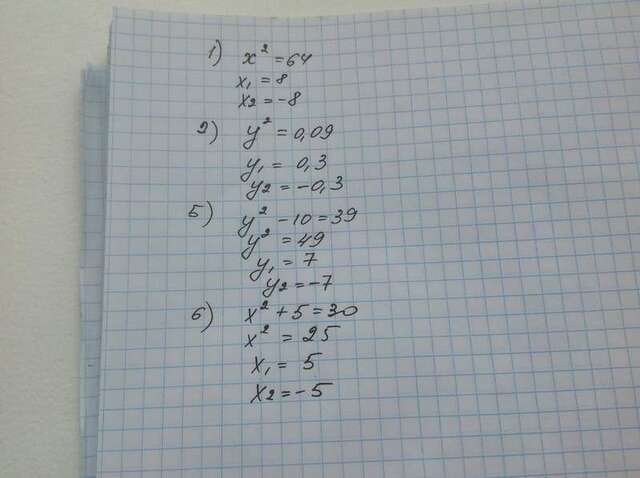 1) x² = 64
x₁ = 8
x₂ = -8
2) y² = 0,09
y₁ = 0,3
y₂ = -0,3
5) y² - 10 = 39
y² = 49
y₁ = 7
y₂ = -7
6) x² + 5 = 30
x² = 25
x₁ = 5
x₂ = -5